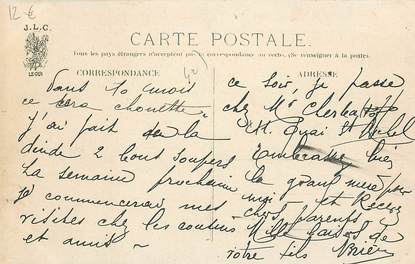 12 €
J.L.C.
CARTE POSTALE.
Tous les pays étrangers n'acceptent pas la correspondance au recto. (Se renseigner à la poste).
CORRESPONDANCE
ADRESSE
LE GUI
Dans 10 mois
ce sera chouette
j'ai fait de la
dinde 2 bons soupers
La semaine prochaine
je commencerai mes
visites chez les cousins
et amis -
ce soir, je passe
chez Mr
Quai St Michel
Embrassez bien
la grand mère pour
moi et Recevez
chers parents
Mille baisers de
votre fils